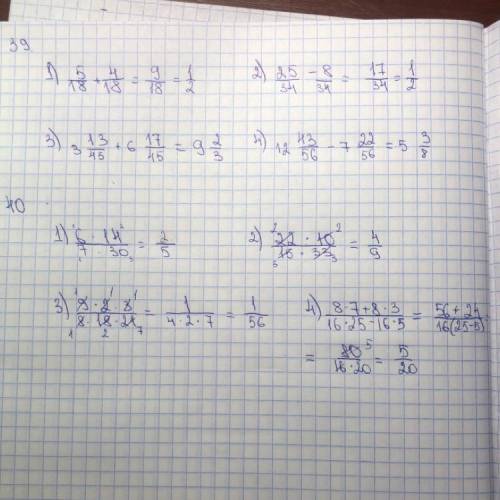 39
1) 5/18 + 4/18 = 9/18 = 1/2 2) 25/34 - 8/34 = 17/34 = 1/2
3) 3 13/45 + 6 17/45 = 9 2/3 4) 12 43/56 - 7 22/56 = 5 3/8
40
1) 6 · 14 / 7 · 30 = 2/5 2) 22 · 10 / 15 · 33 = 4/9
3) / 8 · 18 · 21 = 1 / 4 · 2 · 7 = 1/56 4) 8 · 7 + 8 · 3 / 16 · 25 - 16 · 5 = 56 + 24 / 16(25-5) =
= 80 / 16 · 20 = 5/20